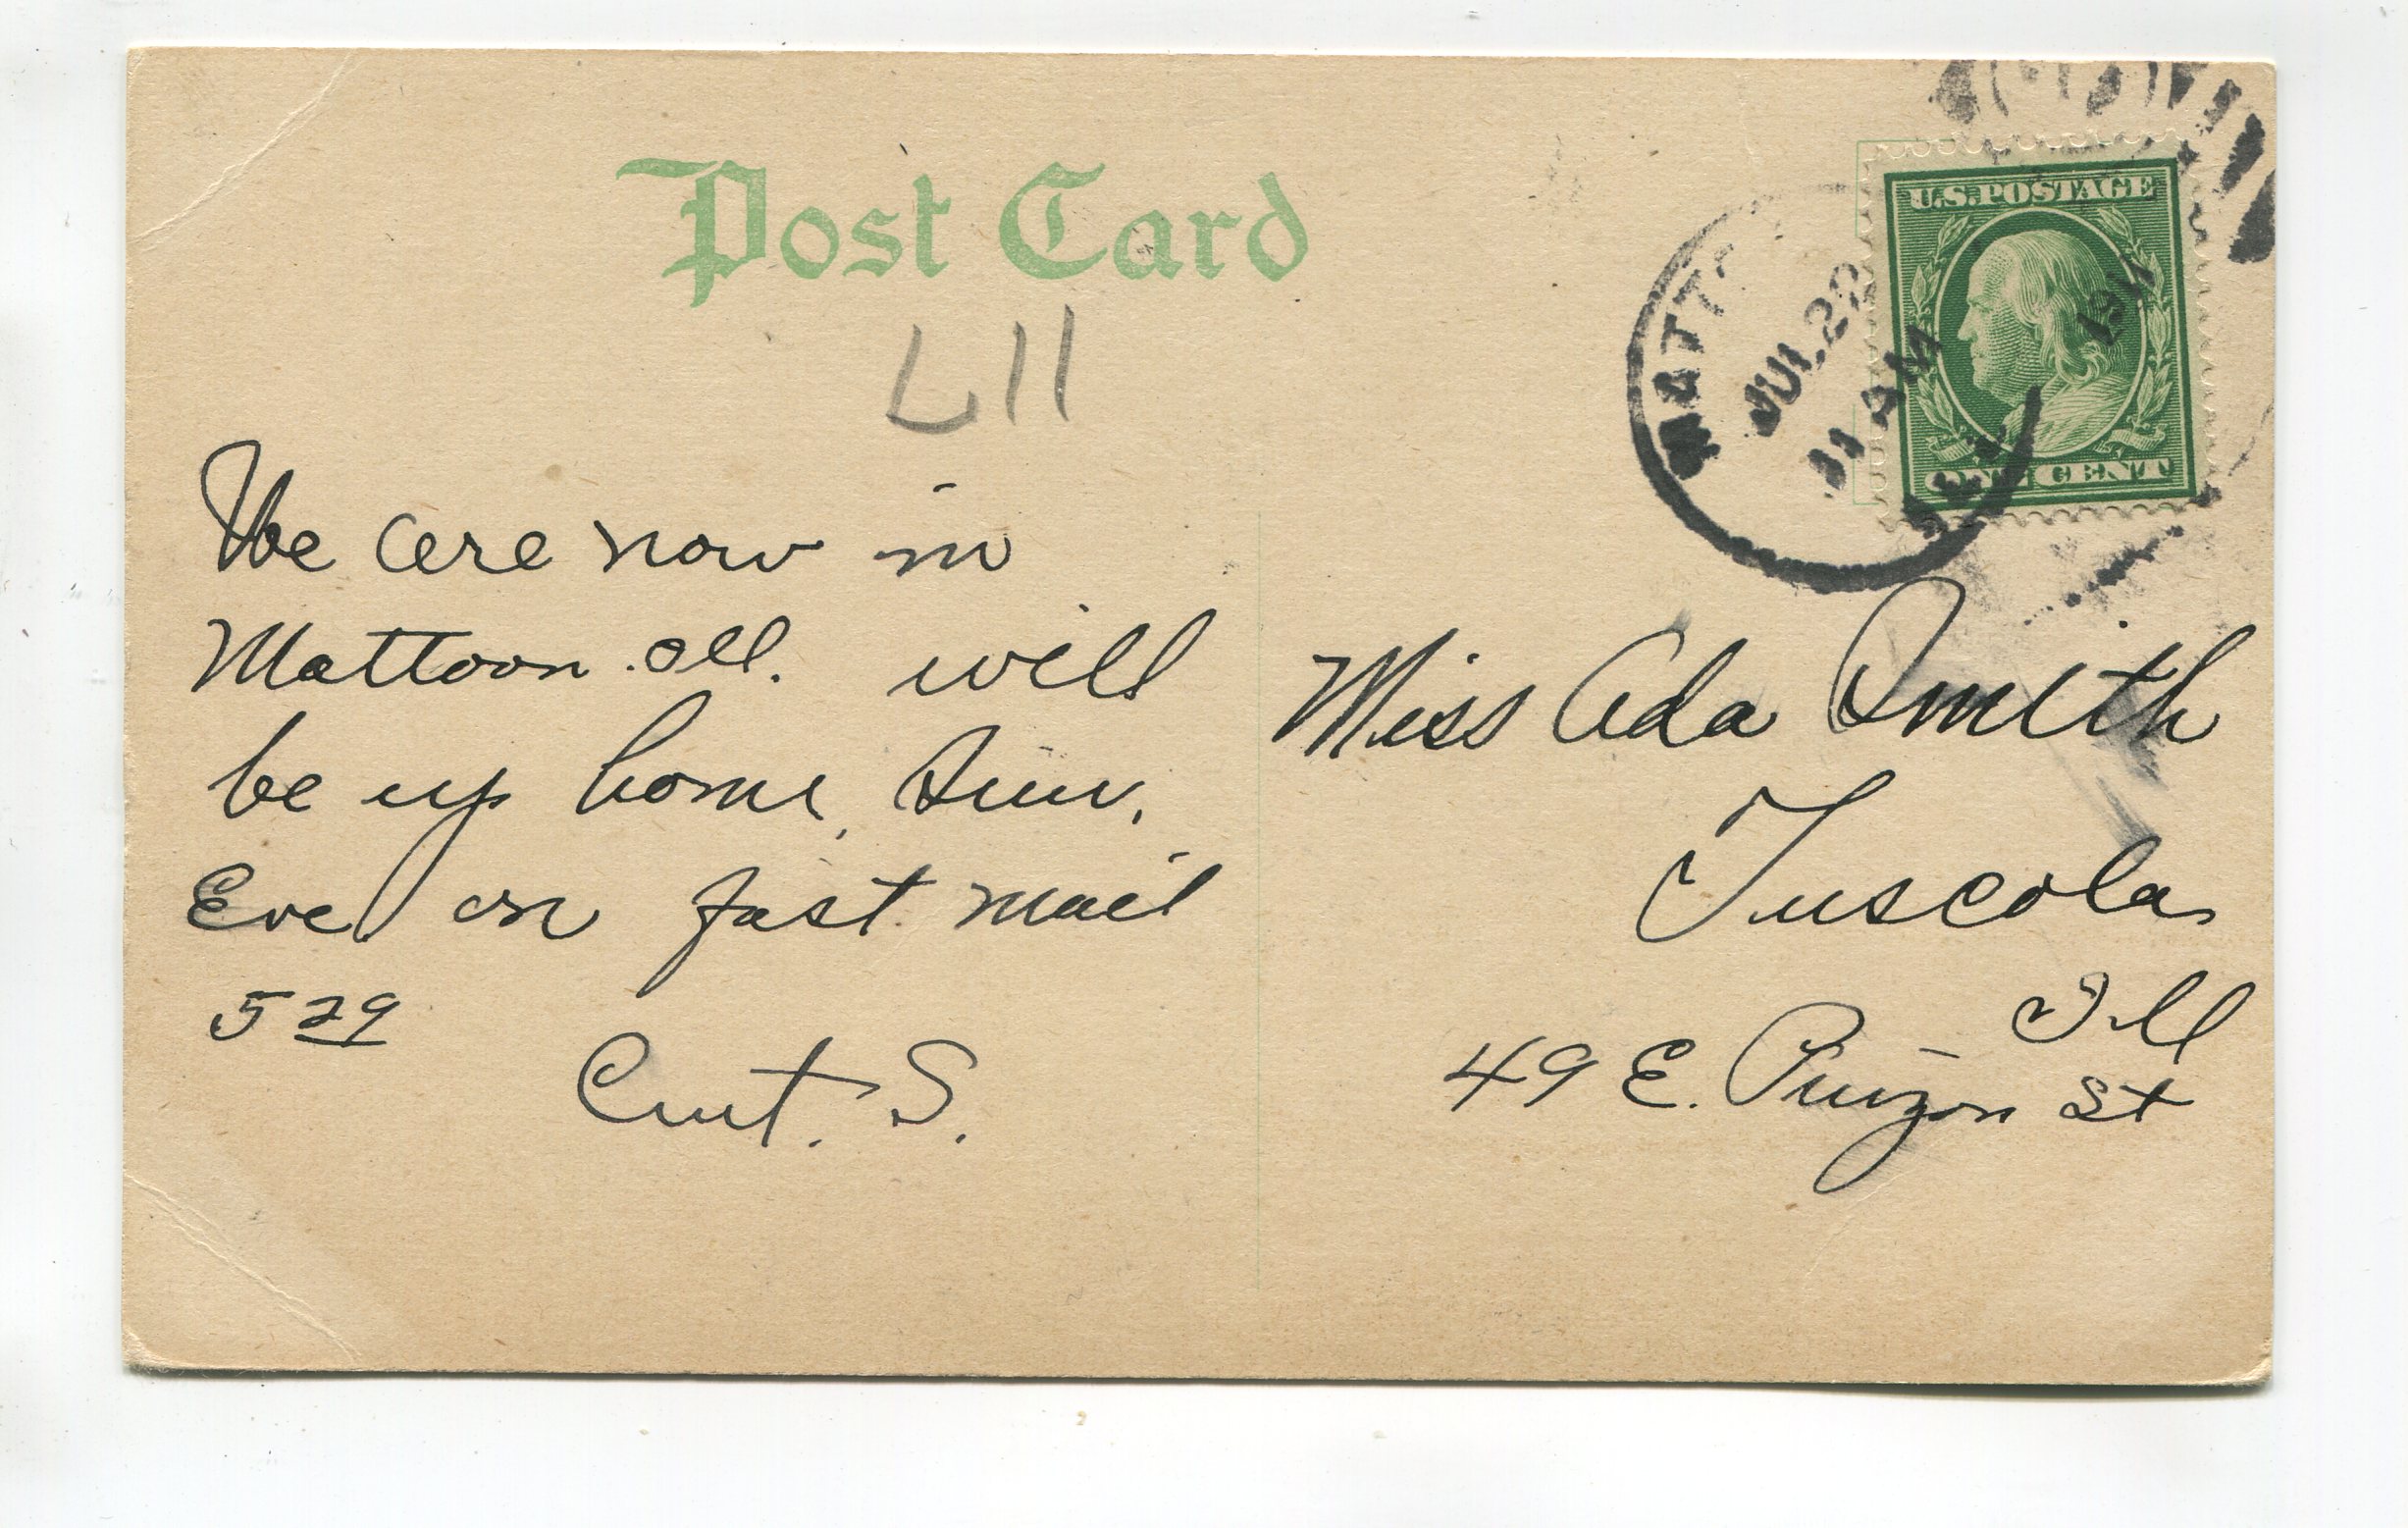 Post Card
L11
We are now in
Mattoon Ill. will
be up home, Sun.
Eve. on fast mail
5 29
Curt. S.
MATT
JUL 22
11 AM
1911
ILL
U.S. POSTAGE
ONE CENT
Miss Ada Smith
Tuscola
Ill
49 E. St